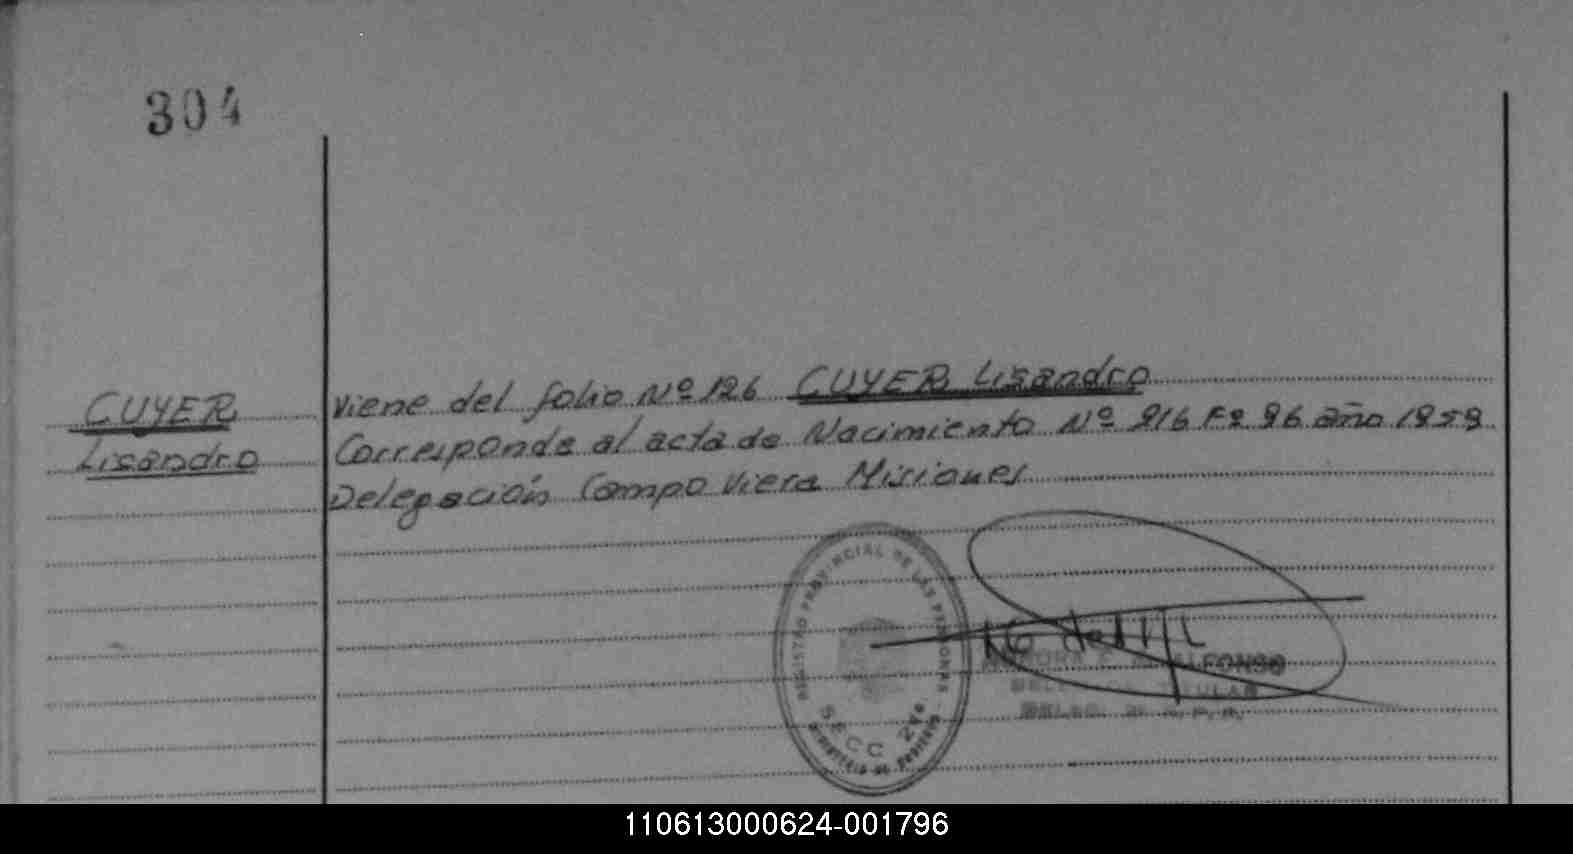 304
CUYER
Lisandro
Viene del folio Nº 126 CUYER Lisandro
Corresponde al acta de Nacimiento Nº 216 Fº 96 año 1959
Delegación Campo Viera Misiones
REGISTRO PROVINCIAL DE LAS PERSONAS
SECC 2da
ALFONSO
TITULAR
110613000624-001796